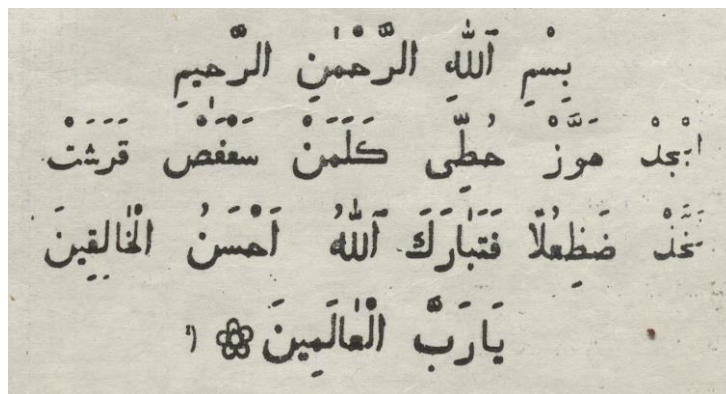 بِسْمِ ٱللّٰهِ الرَّحْمٰنِ الرَّحِيمِ
اَبْجَدْ هَوَّزْ حُطِّى كَلَمَنْ سَعْفَصْ قَرَشَتْ
ثَخَّذْ ضَظِعُلّا فَتَبَارَكَ ٱللّٰهُ اَحْسَنُ الْخَالِقِينَ
يَا رَبَّ الْعَالَمِينَ